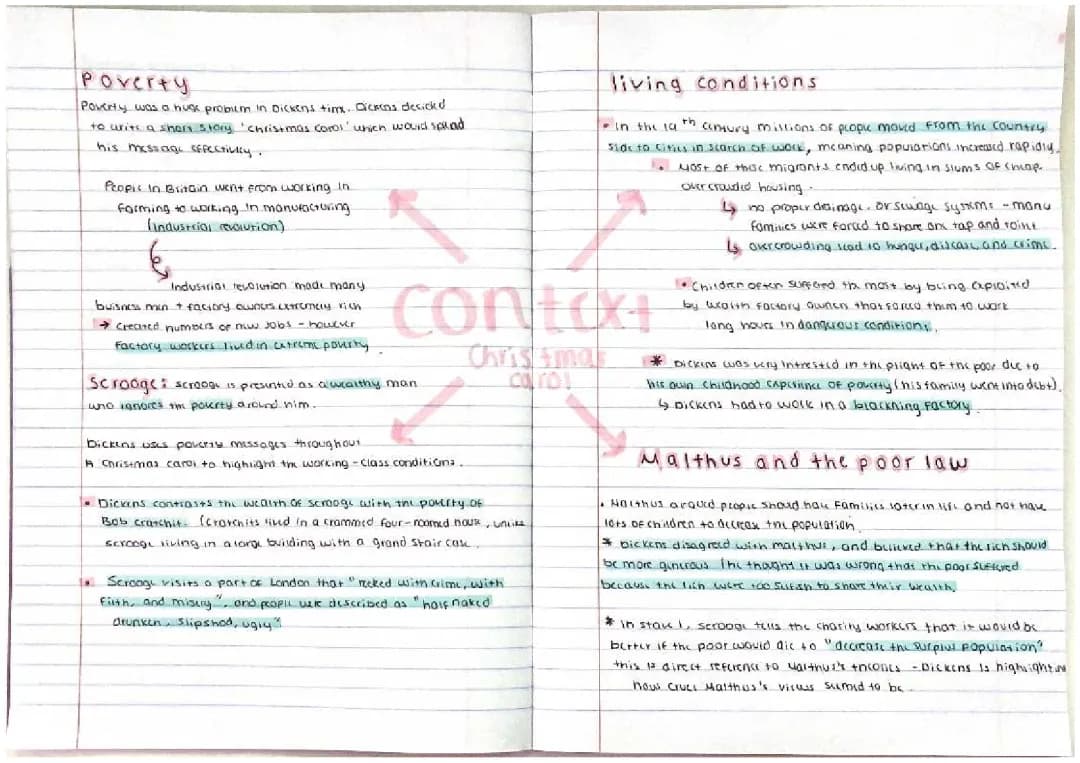 Poverty
Poverty was a huge problem in Dickens time. Dickens decided
to write a short story 'Christmas Carol' which would spread
his message effectivley.
People in Britain went from working in
farming to working in manufacturing
(industrial revolution)
Industrial revolution made many
buisness men + factory owners extremely rich
→ created numbers of new jobs - however
factory workers lived in extreme poverty
Scrooge: scrooge is presented as a wealthy man
who ignores the poverty around him.
Dickens uses poverty messages throughout
A Christmas carol to highlight the working-class conditions.
• Dickens contrasts the wealth of scrooge with the poverty of
Bob cratchit. (cratchits lived in a crammed four-roomed house, unlike
scrooge living in a large building with a grand stair case.
• Scrooge visits a part of London that "reeked with crime, with
filth, and misery", and people were described as "half naked
drunken, slipshod, ugly"
context
Christmas
carol
living conditions
• In the 19th century millions of people moved from the country
side to cities in search of work, meaning populations increased rapidly.
• Most of these migrants ended up living in slums of cheap
overcrowded housing.
↳ no proper drainage or sewage systems - many
families were forced to share one tap and toilet
↳ overcrowding lead to hunger, disease, and crime.
• Children often suffered the most by being exploited
by wealth factory owners that forced them to work
long hours in dangerous conditions.
* Dickens was very intrested in the plight of the poor due to
his own childhood experience of poverty (his family went into debt).
↳ Dickens had to work in a blackning factory.
Malthus and the poor law
• Malthus argued people should have families later in life and not have
lots of children to decrease the population.
* Dickens disagreed with malthus, and believed that the rich should
be more generous. (he thought it was wrong that the poor suffered
because the rich were too selfish to share their wealth.
* In stave 1, scrooge tells the charity workers that it would be
better if the poor would die to "decrease the surplus population"
this is direct reference to Malthus's theories - Dickens is highlighting
how cruel Malthus's views seemed to be.